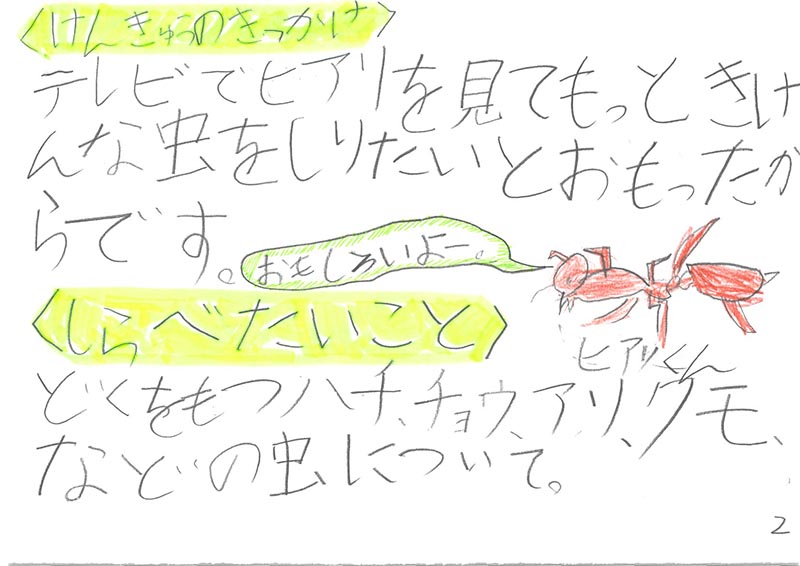 〈けんきゅうのきっかけ〉
テレビでヒアリを見てもっときけ
んな虫をしりたいとおもったか
らです。
おもしろいよー。
ヒアリくん
〈しらべたいこと〉
どくをもつハチ、チョウ、アリ、グモ、
などの虫について。
2